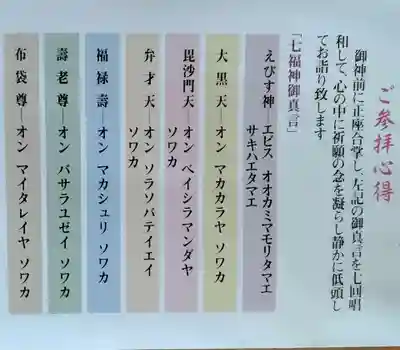 ご参拝心得
御神前に正座合掌し、左記の御真言を七回唱
和して、心の中に祈願の念を凝らし静かに低頭し
てお詣り致します
「七福神御真言」
えびす神―エビス オオカミマモリタマエ
サキハエタマエ
大黒天―オン マカカラヤ ソワカ
毘沙門天―オン ベイシラマンダヤ
ソワカ
弁才天―オン ソラソバテイエイ
ソワカ
福禄壽―オン マカシュリ ソワカ
壽老尊―オン バサラユゼイ ソワカ
布袋尊―オン マイタレイヤ ソワカ